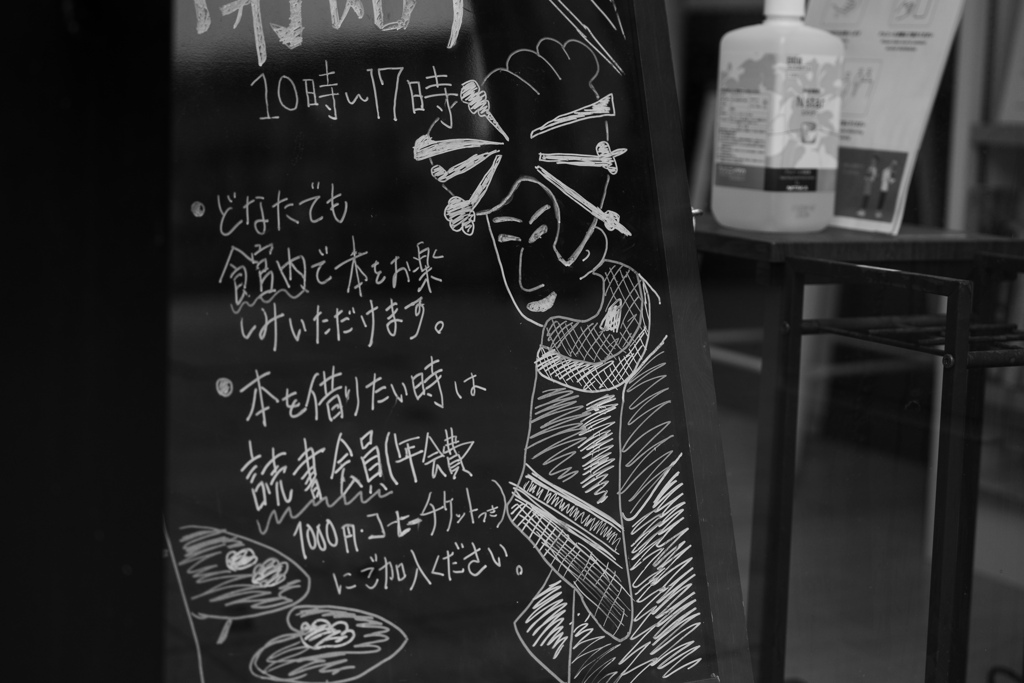 10時〜17時
どなたでも
館内で本をお楽
しみいただけます。
本を借りたい時は
読書会員(年会費
1000円・コーヒーチケットつき)
にご加入ください。